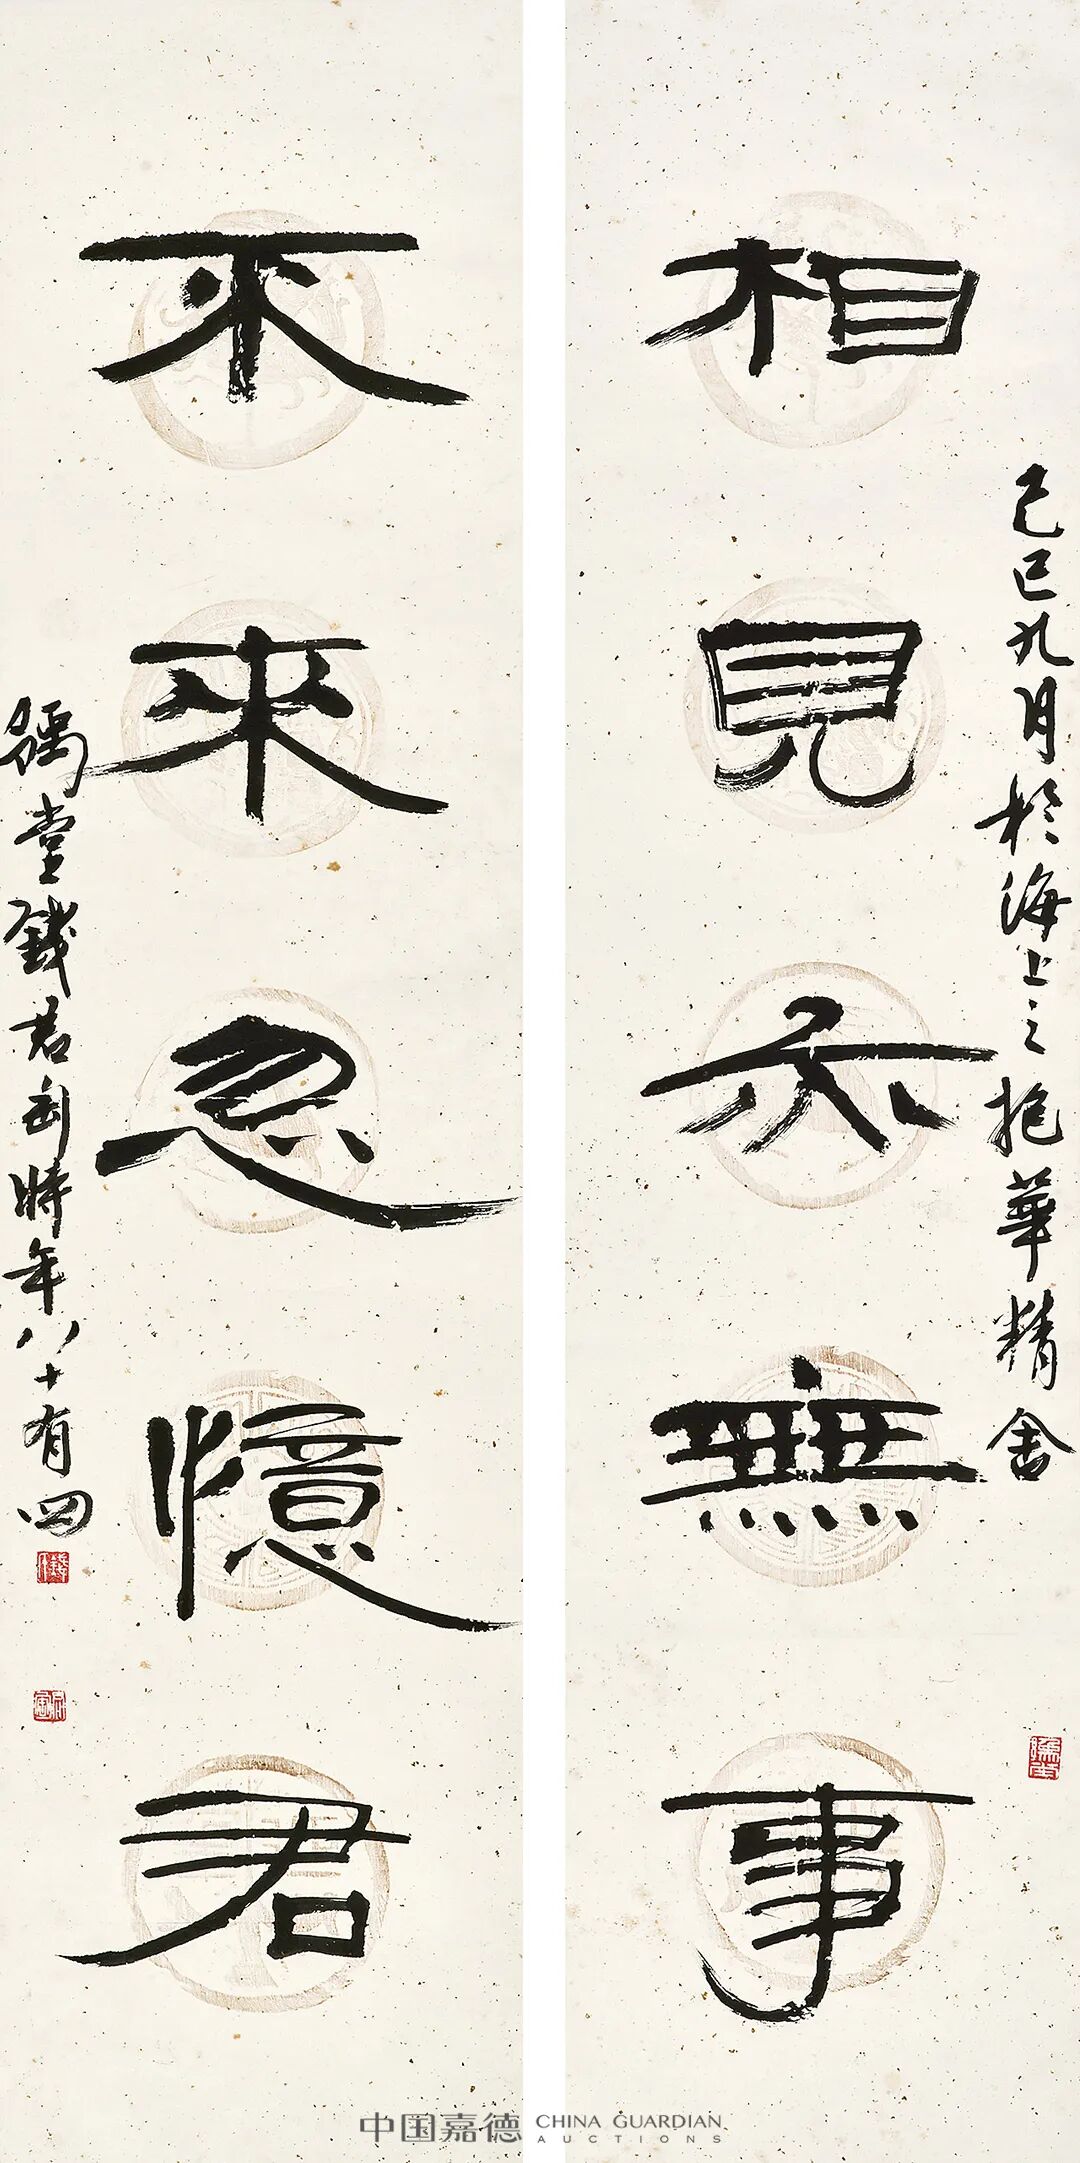 相見亦無事
己巳九月於海上之抱華精舍
不來忽憶君
錢君匋時年八十有四
中国嘉德 CHINA GUARDIAN AUCTIONS